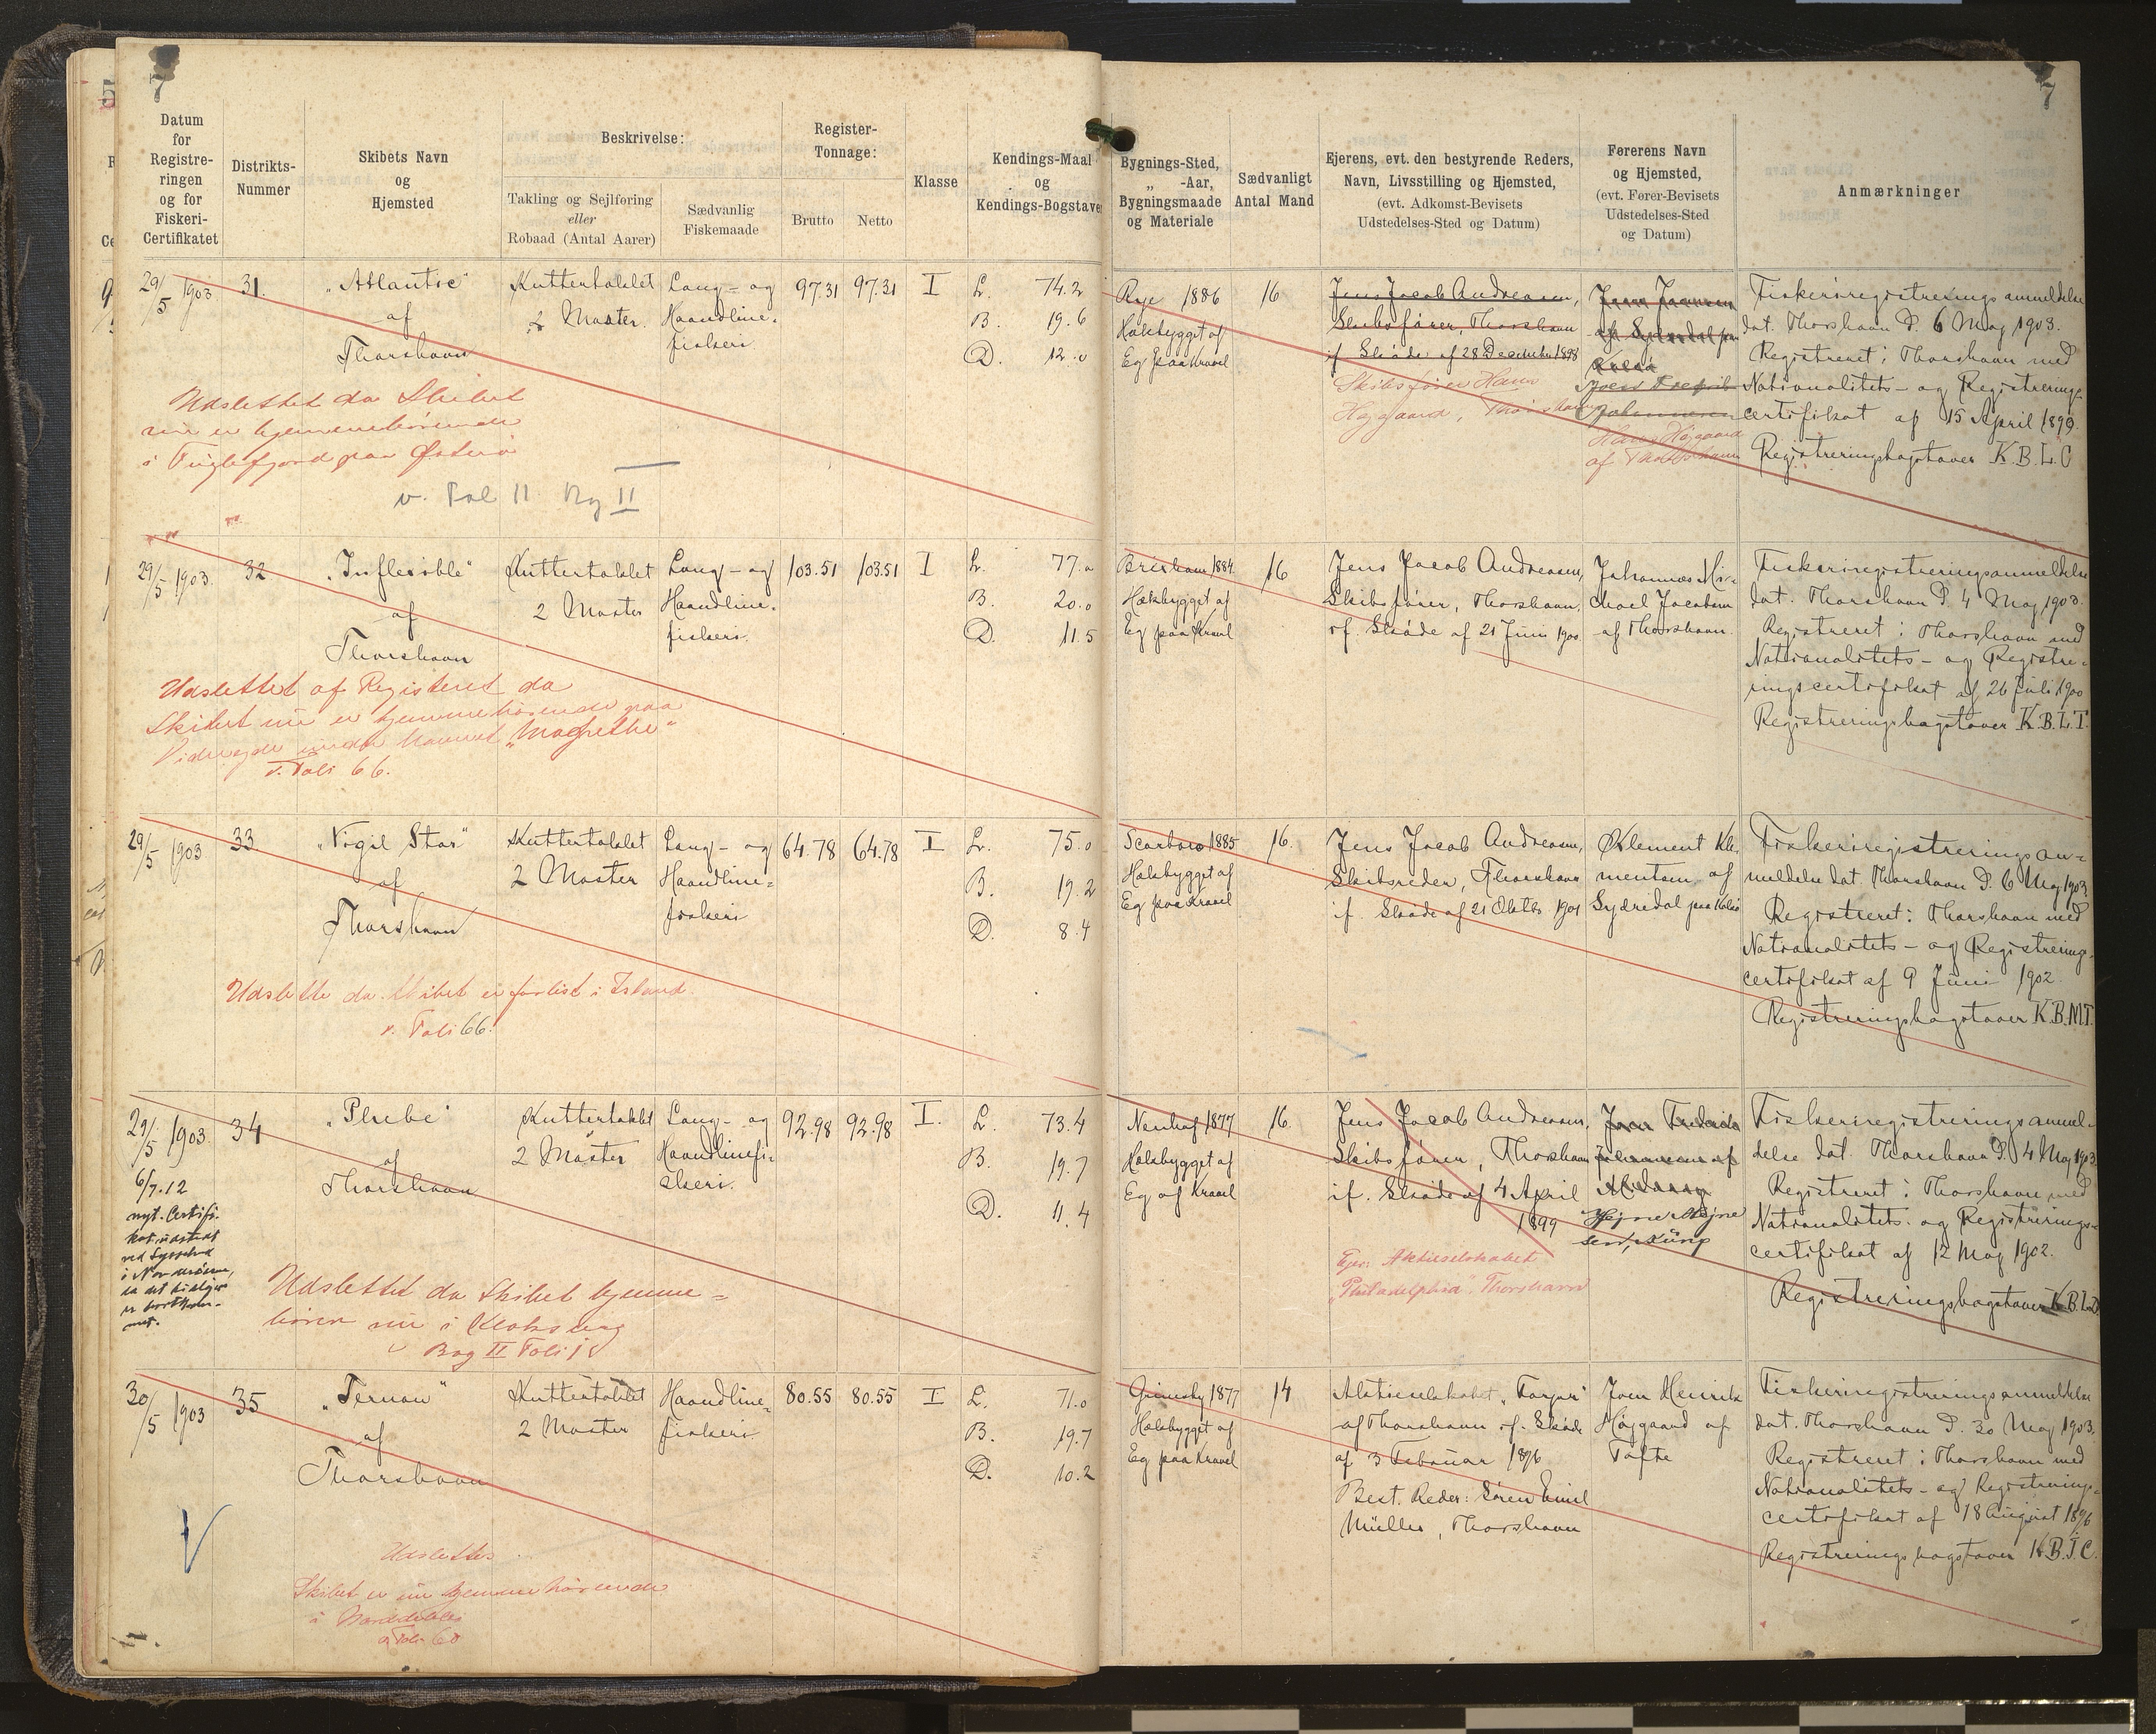 7
7
5
Datum
for
Registre-
ringen
og for
Fiskeri-
Certifikatet
Distrikts-
Nummer
Skibets Navn
og
Hjemsted
Beskrivelse:
Takling og Sejlføring
eller
Robaad (Antal Aarer)
Sædvanlig
Fiskemaade
Register-
Tonnage:
Brutto
Netto
Klasse
Kendings-Maal
og
Kendings-Bogstaver
Bygnings-Sted,
„ -Aar,
Bygningsmaade
og Materiale
Sædvanligt
Antal Mand
Ejerens, evt. den bestyrende Reders,
Navn, Livsstilling og Hjemsted,
(evt. Adkomst-Bevisets
Udstedelses-Sted og Datum)
Førerens Navn
og Hjemsted,
(evt. Fører-Bevisets
Udstedelses-Sted
og Datum)
Anmærkninger
29/5 1903
31.
„Atlantic"
af
Thorshavn
Kuttertaklet
2 Master.
Lang- og
Haandline-
fiskeri
97.31
97.31
I
L. 74.2
B. 19.6
D. 12.0
Rye 1886
Hækbygget af
Eg paa Kravel
16
Jens Jacob Andreasen,
Skibsfører, Thorshavn
if. Skøde af 28 December 1898
Skibsfører Hans
Højgaard, Thorshavn
Joen Joensen
af Sydredal paa
Kalsø
Joen Fredrik
Johannesen
Hans Højgaard
af Thorshavn
Fiskeriregistreringsanmeldelse
dat. Thorshavn D. 6 Maj 1903.
Registreret i Thorshavn med
Nationalitets- og Registrerings-
certifikat af 15 April 1899.
Registreringsbogstaver K.B.L.C
Udslettet da Skibet
nu er hjemmehørende
i Fuglefjord paa Østerø
v. Fol 11 Bog II
29/5 1903.
32
„Inflexible"
af
Thorshavn
Kuttertaklet
2 Master
Lang- og
Haandline-
fiskeri.
103.51
103.51
I
L. 77.0
B. 20.0
D. 11.5
Brixham 1884.
Hækbygget af
Eg paa Kravel
16
Jens Jacob Andreasen,
Skibsfører, Thorshavn,
if. Skøde af 21 Juni 1900
Johannes Mi-
chael Jacobsen
af Thorshavn.
Fiskeriregistreringsanmeldelse
dat. Thorshavn D. 4 Maj 1903.
Registreret i Thorshavn med
Nationalitets- og Registre-
ringscertifikat af 26 Juli 1900
Registreringsbogstaver K.B.L.T.
Udslettet af Registeret da
Skibet nu er hjemmehørende paa
Videreejde under Navnet „Magrethe"
v. Foli 66.
29/5 1903
33
„Vigil Star"
af
Thorshavn
Kuttertaklet
2 Master
Lang- og
Haandline-
fiskeri
64.78
64.78
I
L. 75.0
B. 19.2
D. 8.4
Scarboro 1885
Hækbygget af
Eg paa Kravel
16.
Jens Jacob Andreasen,
Skibsreder, Thorshavn
if. Skøde af 21 Oktbr 1901
Klement Kle-
mentsen af
Sydredal paa Kalsø
Fiskeriregistreringsan-
meldelse dat. Thorshavn D. 6 Maj 1903
Registreret i Thorshavn med
Nationalitets- og Registrerings-
certifikat af 9 Juni 1902.
Registreringsbogstaver K.B.M.T.
Udslette da Skibet er forlist i Island.
v. Foli 66.
29/5 1903.
34
„Phebe"
af
Thorshavn
Kuttertaklet
2 Master
Lang- og
Haandlinefi-
skeri.
92.98
92.98
I.
L. 73.4
B. 19.7
D. 11.4
1877
Hækbygget af
Eg af Kravel
16.
Jens Jacob Andreasen,
Skibsfører, Thorshavn
if. Skøde af 4 April
1899
Ejer: Aktieselskabet
„Philadelphia", Thorshavn
Joen Fredrik
Johannesen af
Højne Højne
sen, Kúnø
Fiskeriregistreringsanmel-
delse dat. Thorshavn D. 4 Maj 1903.
Registreret i Thorshavn med
Nationalitets- og Registrerings-
certifikat af 12 Maj 1902.
Registreringsbogstaver K.B.L.D
6/7.12
nyt. Certifi-
kat udstedt
ved Sysselmd
i Norderøerne,
da det tidligere
er bortkom-
met.
Udslettet da Skibet hjemme-
hører nu i Klaksvig
v Bog II Foli 18
30/5 1903
35
„Ternan"
af
Thorshavn
Kuttertaklet
2 Master
Haandline-
fiskeri
80.55
80.55
I
L. 71.0
B. 19.7
D. 10.2
Grimsby 1877
Hækbygget af
Eg paa Kravel
14
Aktieselskabet „Farøer"
af Thorshavn if. Skøde
af 3 Februar 1896
Best. Reder: Søren Emil
Müller, Thorshavn
Joen Henrik
Højgaard af
Tofte
Fiskeriregistreringsanmeldelse
dat. Thorshavn D. 30 Maj 1903.
Registreret i Thorshavn med
Nationalitets- og Registrerings-
certifikat af 18 August 1896
Registreringsbogstaver K.B.J.C.
Udslettes
Skibet er nu hjemmehørende
i
v Foli 60